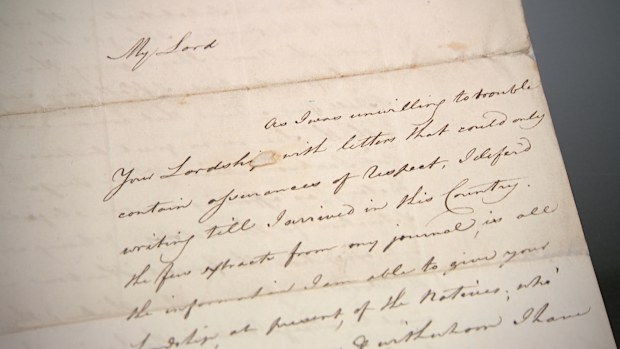 My Lord
As I was unwilling to trouble
Your Lordship with letters that could only
contain assurances of respect, I deferd
writing till I arrived in this Country.
the few extracts from my journal, is all
the information I am able to give your
Lordship, at present, of the Natives; who'
whom I have